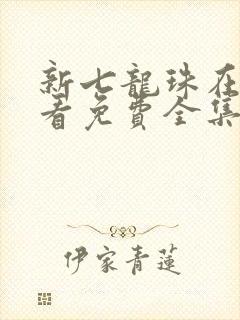 新七龍珠在
看免費全集
伊家青蓮